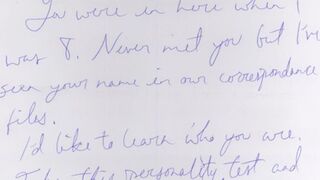 You were in here when I
was 8. Never met you but I've
seen your name in our correspondence
files.
I'd like to learn who you are.
Take this personality test and